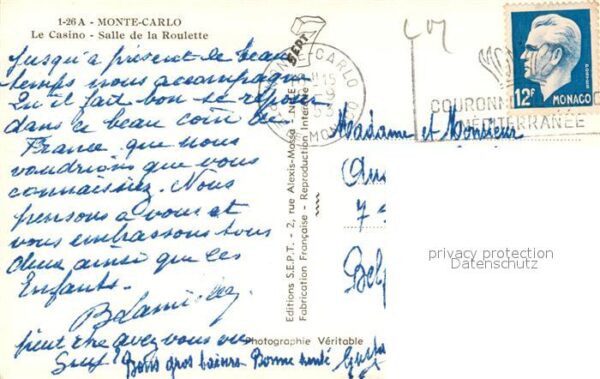 1-26 A - MONTE-CARLO
Le Casino - Salle de la Roulette
Jusqu'à présent le beau
temps nous accompagne
Qu'il fait bon se repos
dans ce beau coin de
France que nous
voudrions que vous
connaissiez. Nous
pensons à vous et
vous embrassons tous
deux ainsi que les
Enfants.
peut être avez vous vu
Bons gros baisers Bonne santé
Editions S.E.P.T. - 2, rue Alexis-Mossa - NICE
Fabrication Française - Reproduction Interdite
SEPT
Photographie Véritable
MONTE-CARLO
15
MONACO
COURONN
MÉDITERRANÉE
12F
MONACO
Madame et Monsieur
7
Belg
privacy protection
Datenschutz